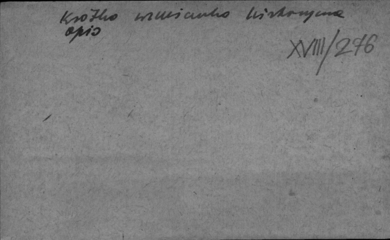 Krótka wzmianka historyczna
opis
XVIII/276